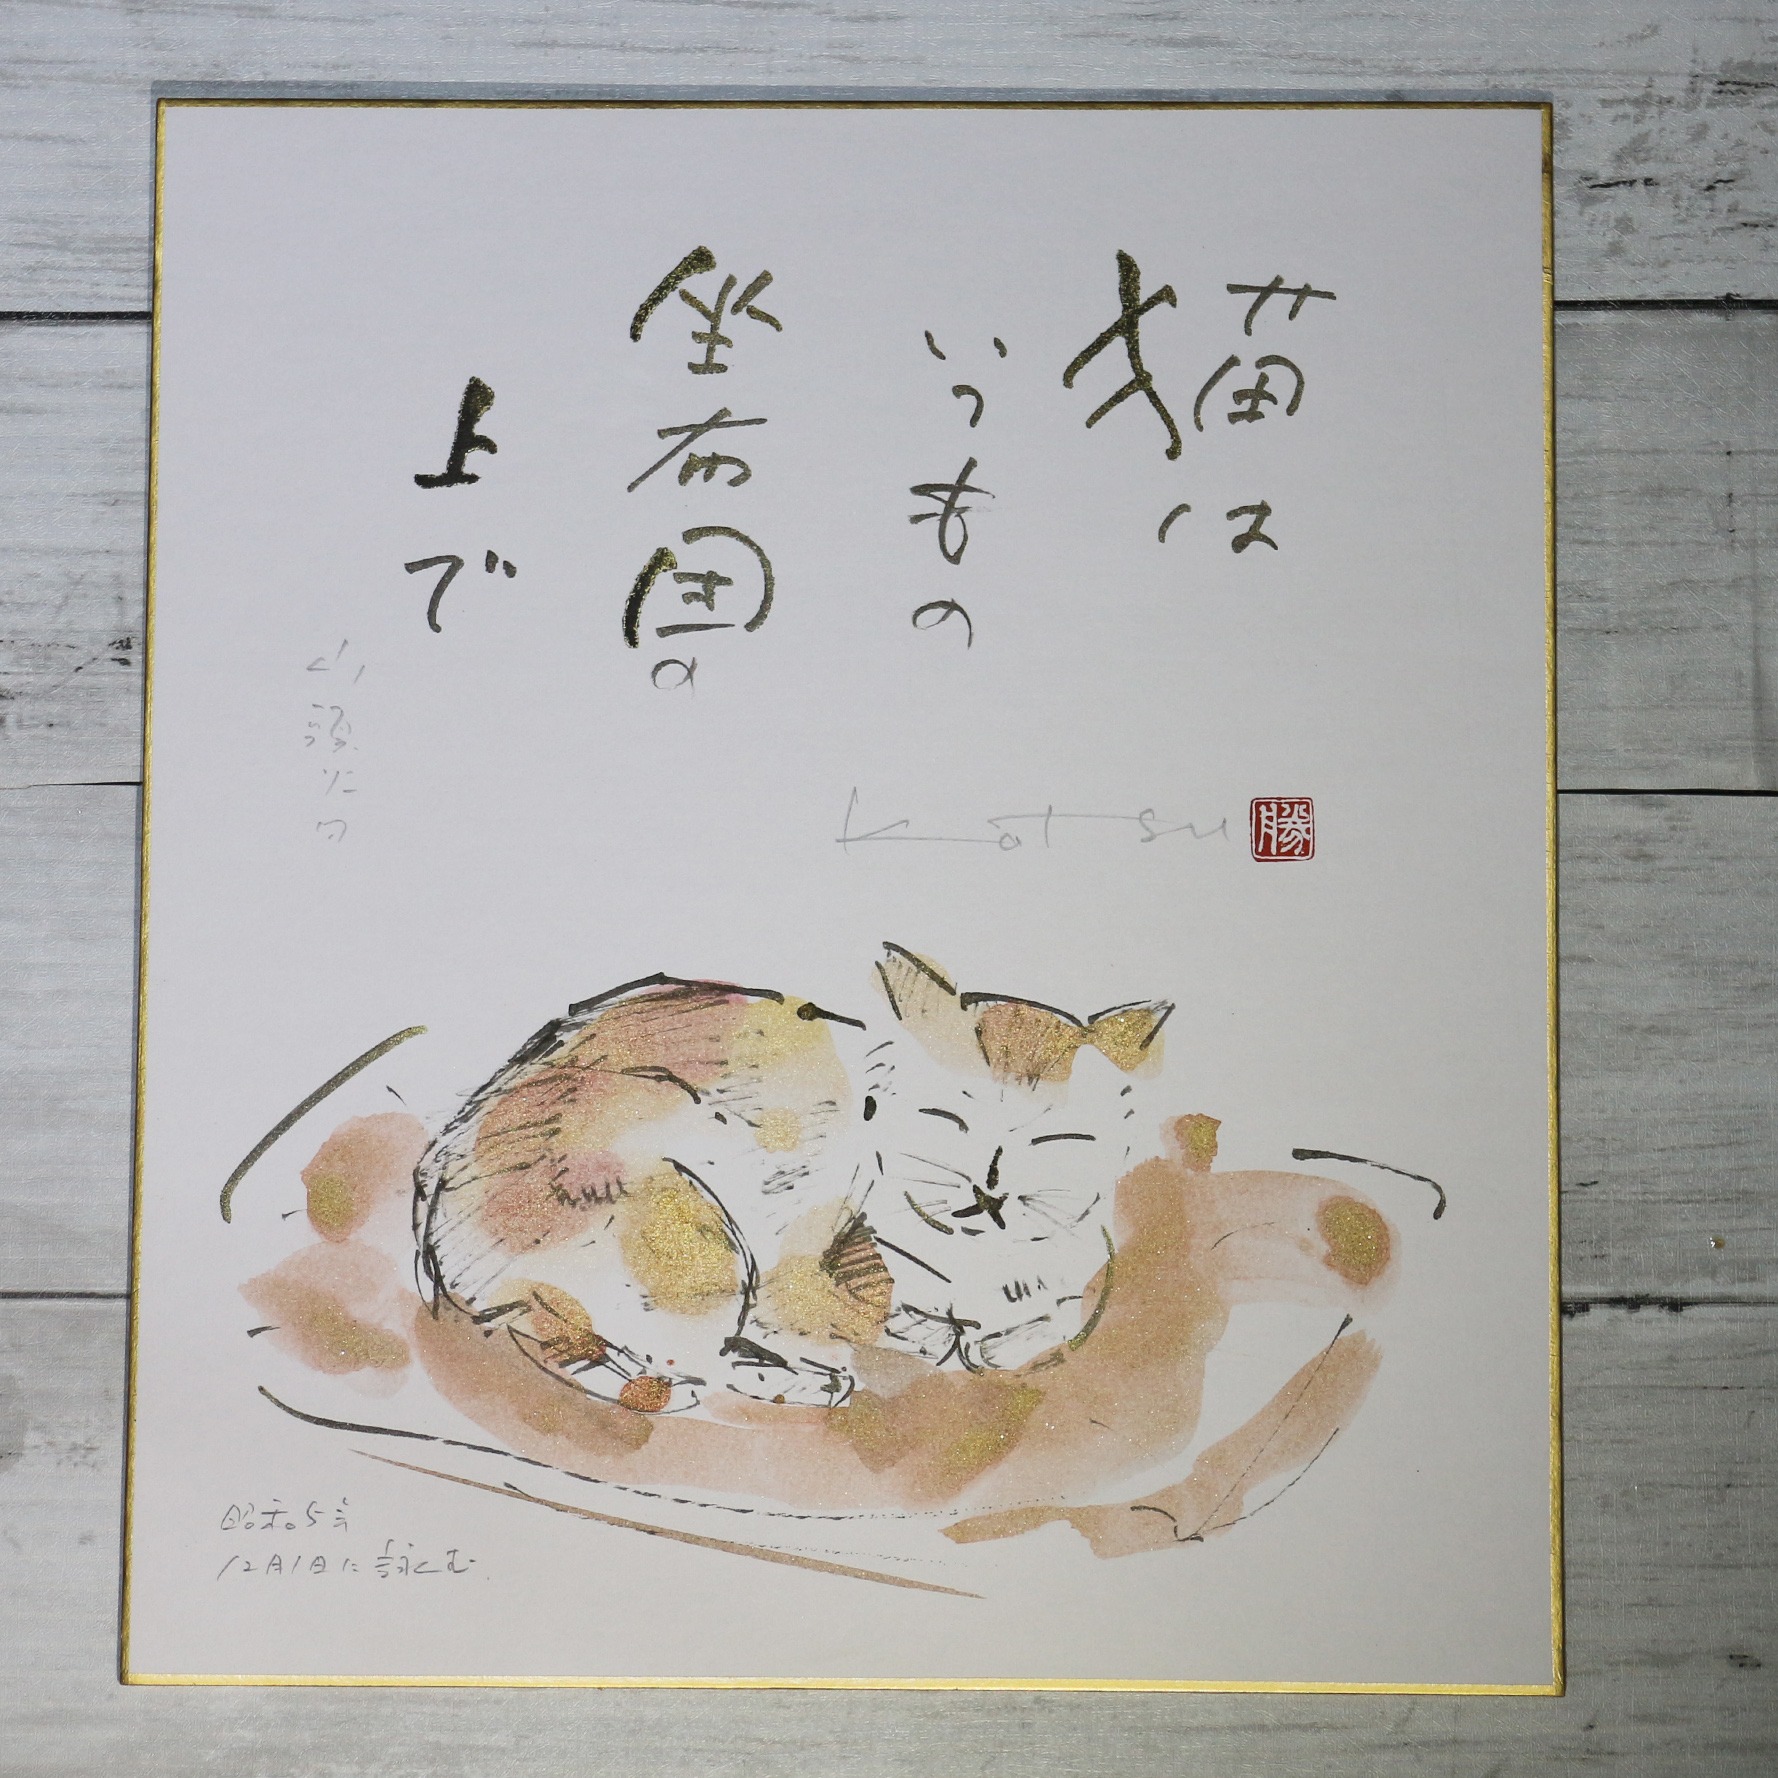 猫は
いつもの
坐布団の
上で
山頭火句
Katsu
勝
昭和5年
12月1日に詠む